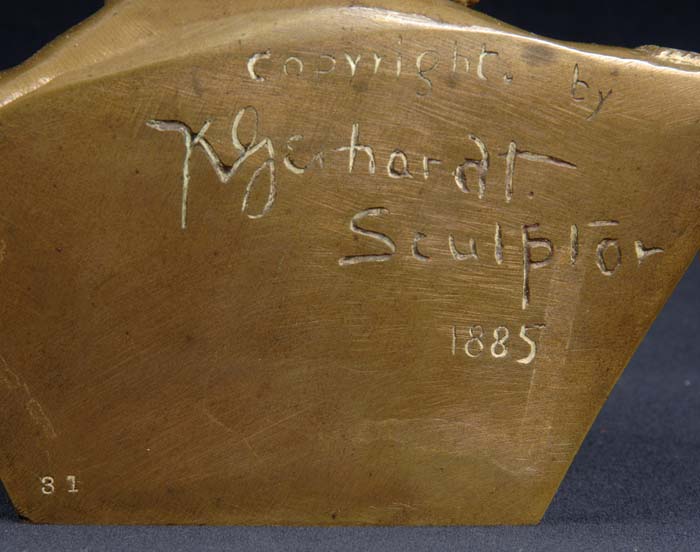 copyright. by
KGerhardt.
Sculptor
1885
31